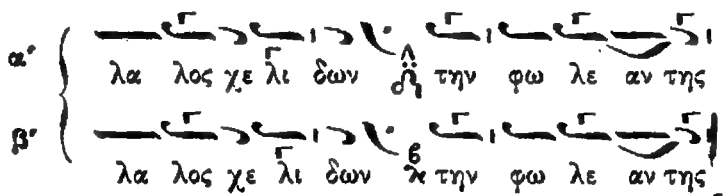 α' λα λος χε λι δων την φω λε αν της
β' λα λος χε λι δων την φω λε αν της